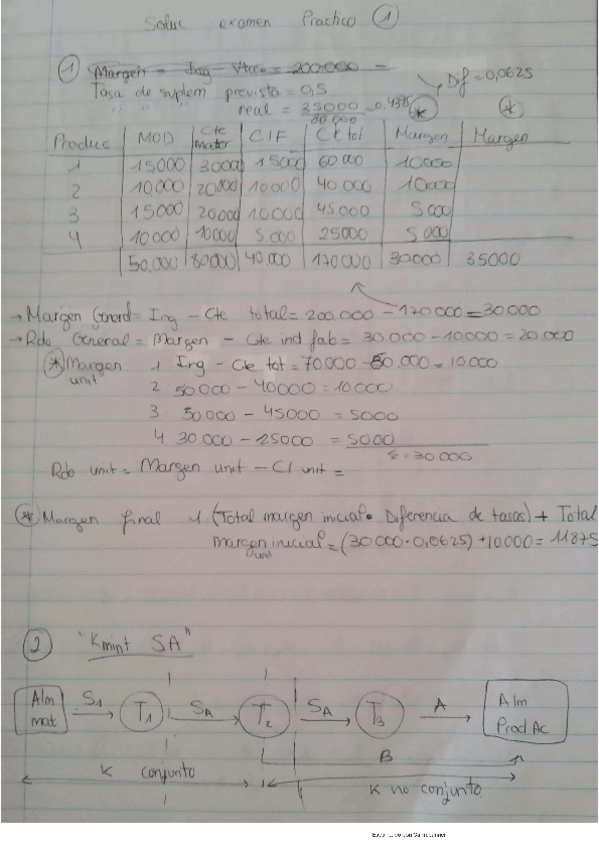 Soluc examen Practico 1
1 Margen = Ing - = 200.000 =
Tasa de suplem prevista = 0,5
Df = 0,0625
" " " real = 35000/80.000 = 0,4375
Produc | MOD | Cte mater | CIF | Ck tot | Margen | Margen
1 | 15000 | 30000 | 15000 | 60.000 | 10000
2 | 10000 | 20.000 | 10000 | 40.000 | 10000
3 | 15000 | 20000 | 10000 | 45000 | 5000
4 | 10000 | 10000 | 5000 | 25000 | 5000
50.000 | 80000 | 40.000 | 170000 | 30000 | 35000
→ Margen Gnord = Ing - Cte total = 200.000 - 170000 = 30000
→ Rdo General = Margen - Cte ind fab = 30.000 - 10000 = 20.000
* Margen unit 1 Ing - Cte tot = 70000 - 60.000 = 10000
2 50.000 - 40000 = 10000
3 50.000 - 45000 = 5000
4 30.000 - 25000 = 5000
Σ = 30000
Rdo unit = Margen unit - CI unit =
* Margen final 1. (Total margen inicial • Diferencia de tasas) + Total
margen unit inicial = (30000 · 0,0625) + 10.000 = 11875
2 "Kmint SA"
Alm mat S1 T1 SA T2 SA T3 A Alm Prod Ac
B
K conjunto K no conjunto